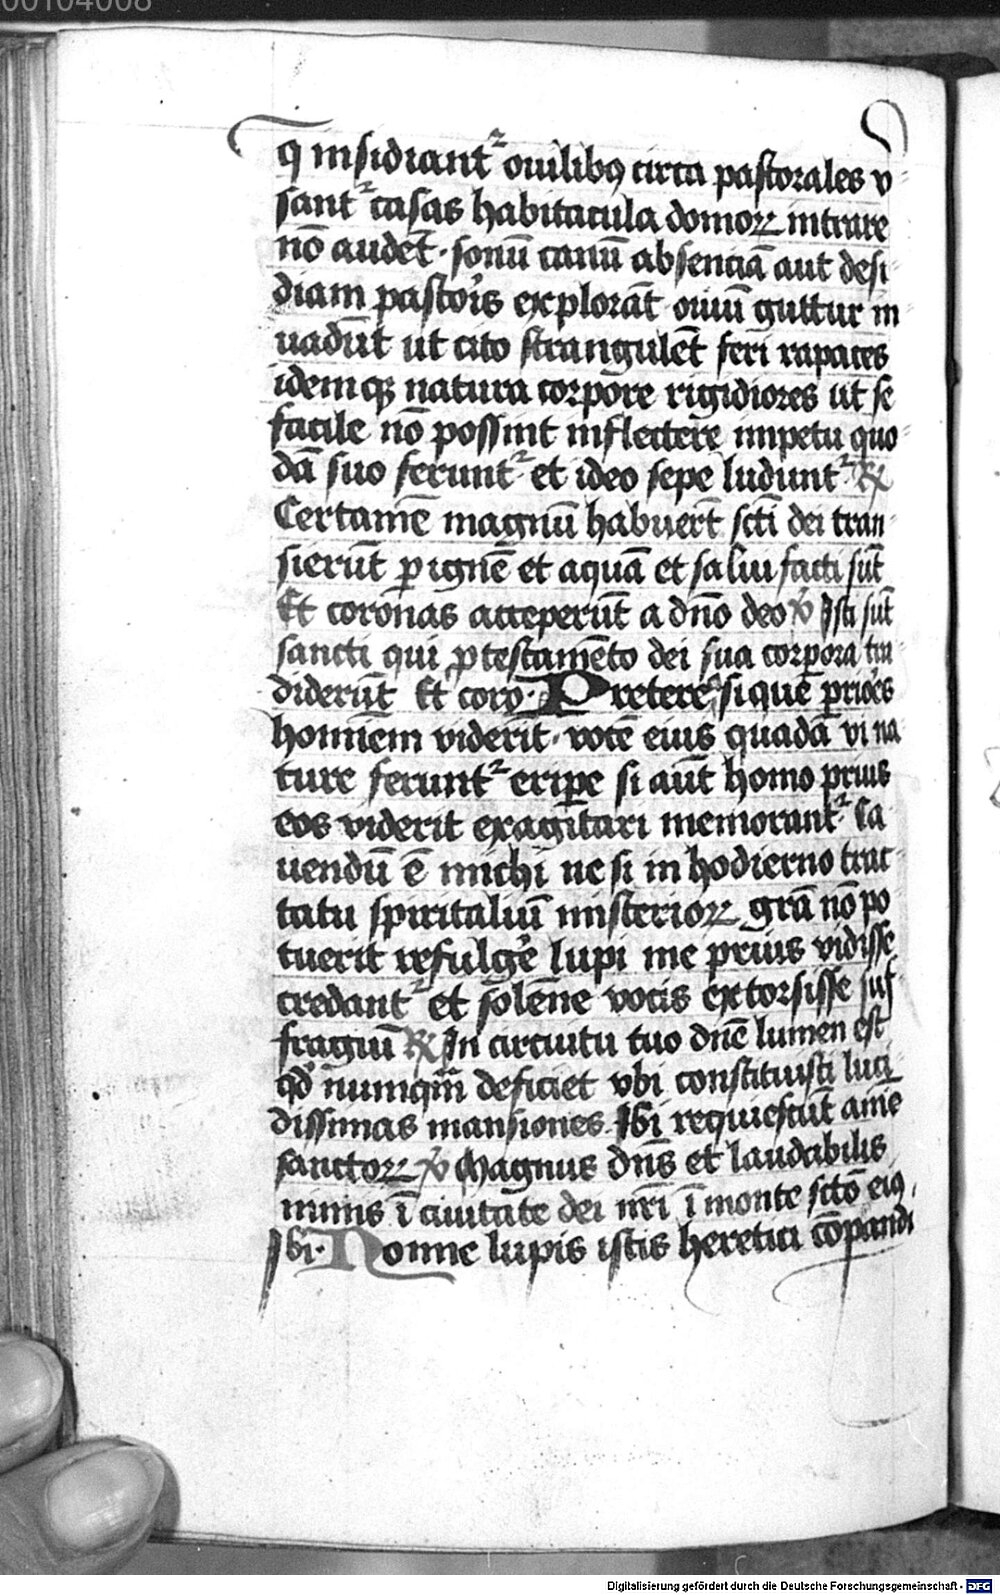 00104008
q insidiantr ouilibꝯ circa pastorales v
santr casas habitacula domoꝝ intrare
nō audēt · sonū canū absenciā aut desi
diam pastoris explorāt ouiū guttur in
uadūt ut cito strangulēt feri rapaces
idemqꝫ natura corpore rigidiores ut se
facile nō possint inflectere impetu quo
dā suo feruntr et ideo sepe luduntr ℟
Certamē magnū habuert̄ scti dei tran
sierūt ꝑ ignē et aquā et salui facti sūt
Et coronas acceperūt a dn̄o deo ℣ Isti sūt
sancti qui ꝓ testamēto dei sua corpora tra
diderūt Et coro · Preterea si quē priores
hominem viderit · vocē eius quadā vi na
ture feruntr eripe si aūt homo prius
eos viderit exagitari memorantr Ca
uendū ē michi ne si in hodierno trac
tatu spiritaliū misterioꝝ gr̄a nō po
tuerit refulgē lupi me prius vidisse
credantr et solēne vocis extorsisse suf
fragiū ℟ In circuitu tuo dn̄e lumen est
qd̄ numqm̄ deficiet vbi constituisti luci
dissimas mansiones Ibi requiescūt aīe
sanctoꝝ ℣ Magnus dn̄s et laudabilis
nimis ī ciuitate dei nr̄i ī monte scto eiꝯ
Ibi · Nonne lupis istis heretici cōpandi
Digitalisierung gefördert durch die Deutsche Forschungsgemeinschaft - DFG